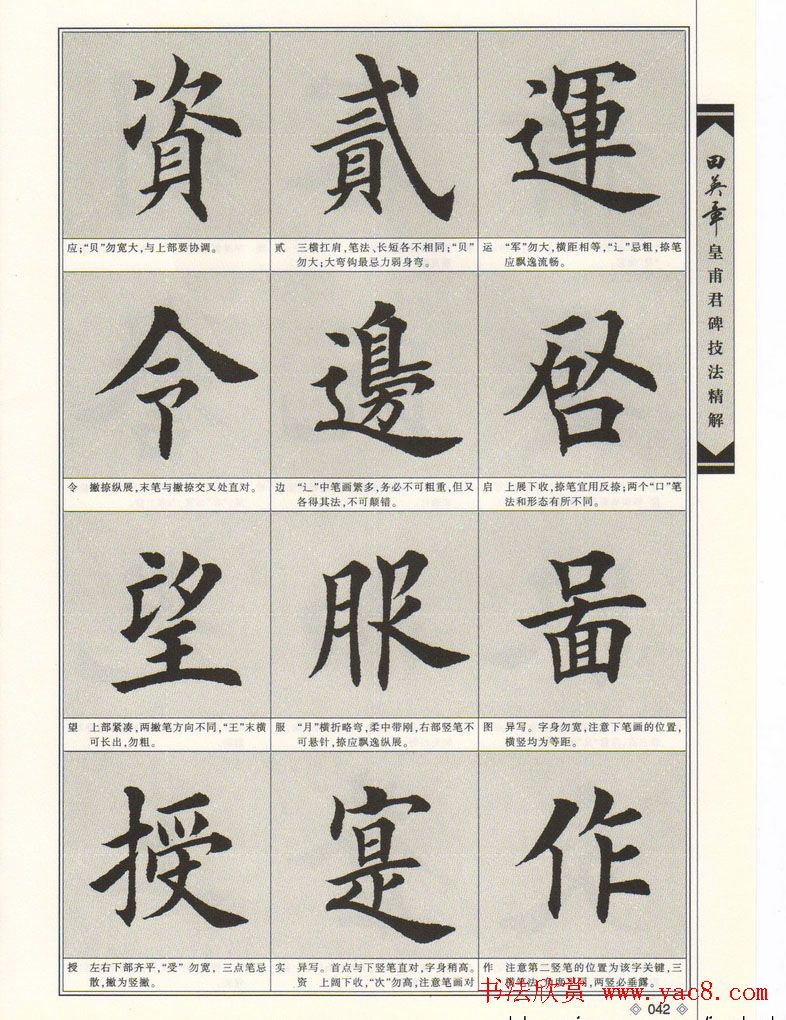 田英章皇甫君碑技法精解
運
运 “军”勿大,横距相等,“辶”忌粗,捺笔
应飘逸流畅。
啓
启 上展下收,捺笔宜用反捺;两个“口”笔
法和形态有所不同。
啚
图 异写。字身勿宽,注意下笔画的位置,
横竖均为等距。
作
作 注意第二竖笔的位置为该字关键,三
横笔法、角度不同,两竖必垂露。
貳
贰 三横扛肩,笔法、长短各不相同;“贝”
勿大;大弯钩最忌力弱身弯。
邊
边 “辶”中笔画繁多,务必不可粗重,但又
各得其法,不可颠错。
服
服 “月”横折略弯,柔中带刚,右部竖笔不
可悬针,捺应飘逸纵展。
寔
实 异写。首点与下竖笔直对,字身稍高。
资 上阔下收,“次”勿高,注意笔画对
資
应;“贝”勿宽大,与上部要协调。
令
令 撇捺纵展,末笔与撇捺交叉处直对。
望
望 上部紧凑,两撇笔方向不同,“王”末横
可长出,勿粗。
授
授 左右下部齐平,“受”勿宽,三点笔忌
散,撇为竖撇。
书法欣赏 www.yac8.com
042